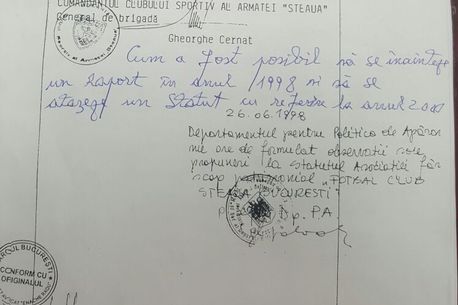 COMANDANTUL CLUBULUI SPORTIV AL ARMATEI "STEAUA"
General de brigadă
Gheorghe Cernat
Cum a fost posibil să se înainteze
un raport în anul 1998 și să se
atașeze un Statut cu referire la anul 2001
26.06.1998
Departamentul pentru Politica de Apărare
nu are de formulat observații sau
propuneri la statutul Asociației fără
scop patrimonial "FOTBAL CLUB
STEAUA BUCUREȘTI"
D.P.A
BAROUL BUCUREȘTI
CONFORM CU
ORIGINALUL